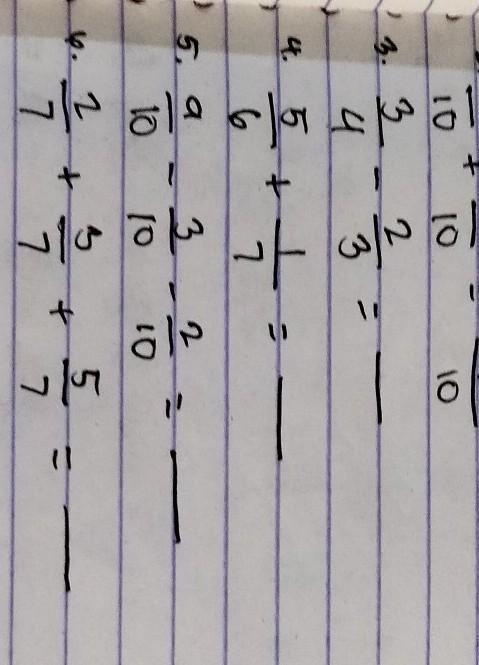 10 + 10 - 10
3. 3/4 - 2/3 = __
4. 5/6 + 1/7 = __
5. 9/10 - 3/10 - 2/10 = __
6. 2/7 + 3/7 + 5/7 = __